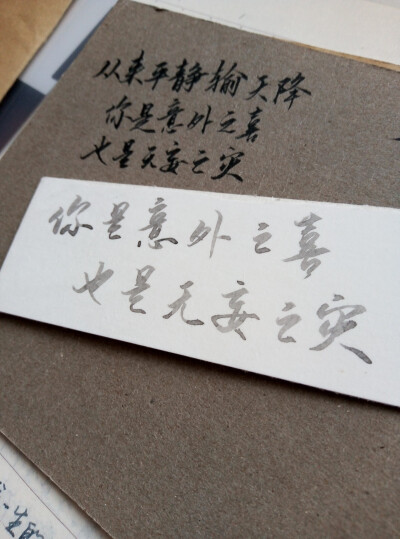 从来平静输天降
你是意外之喜
也是无妄之灾
你是意外之喜
也是无妄之灾
一生的